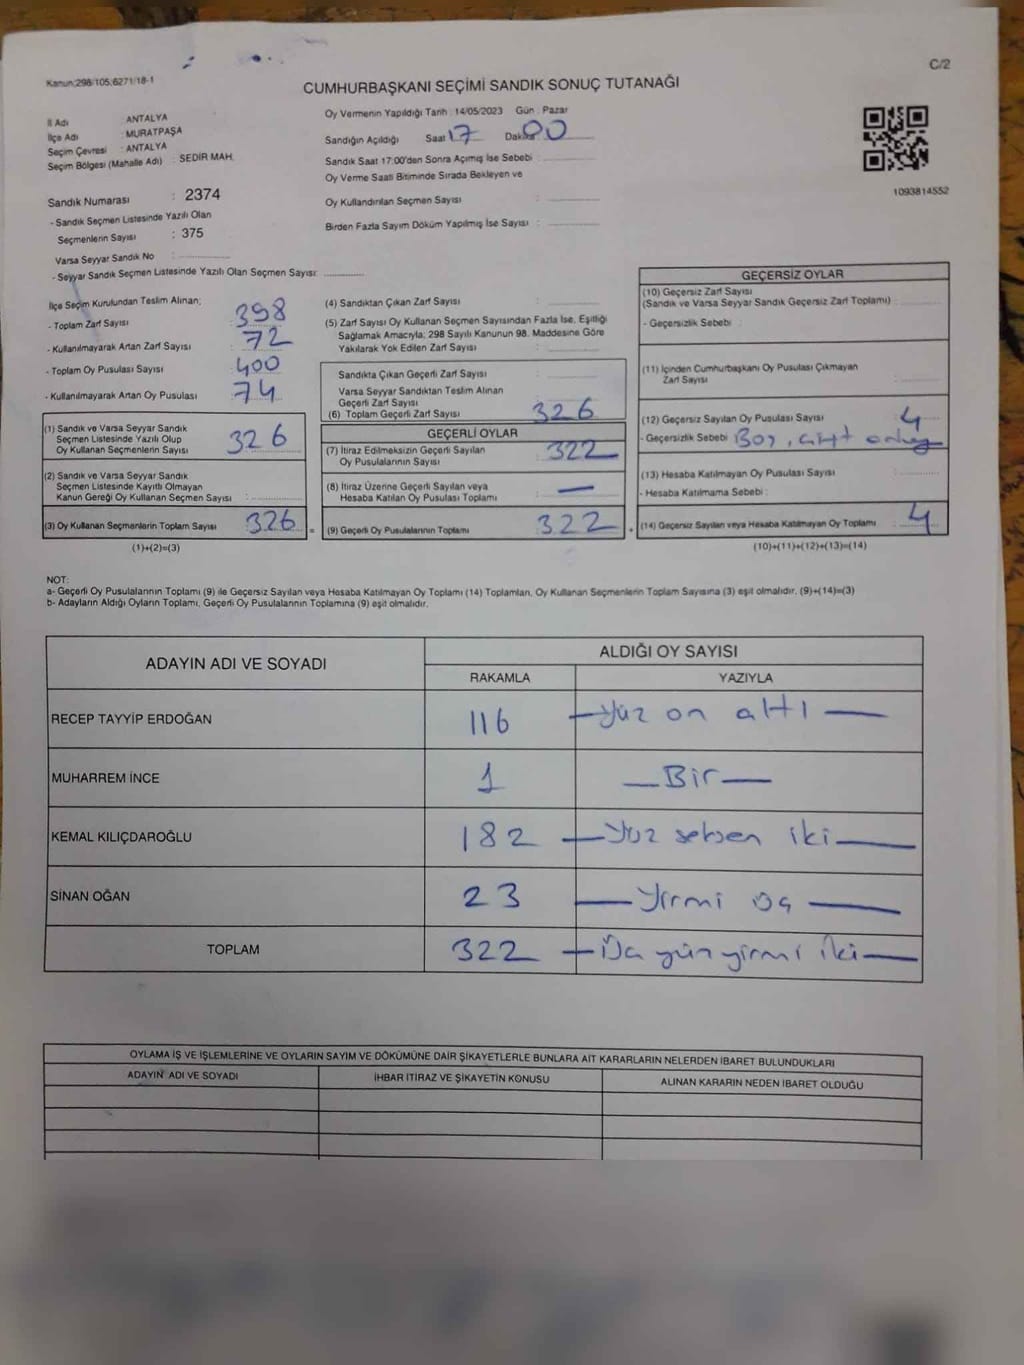 C/2
Kanun:298/105;6271/18-1
CUMHURBAŞKANI SEÇİMİ SANDIK SONUÇ TUTANAĞI
İl Adı : ANTALYA
İlçe Adı : MURATPAŞA
Seçim Çevresi : ANTALYA
Seçim Bölgesi (Mahalle Adı) : SEDİR MAH.
Oy Vermenin Yapıldığı Tarih : 14/05/2023 Gün : Pazar
Sandığın Açıldığı Saat 17 Dakika 00
Sandık Saat 17:00'den Sonra Açılmış İse Sebebi :
Oy Verme Saati Bitiminde Sırada Bekleyen ve
Oy Kullandırılan Seçmen Sayısı :
Birden Fazla Sayım Döküm Yapılmış İse Sayısı :
1093814552
Sandık Numarası : 2374
- Sandık Seçmen Listesinde Yazılı Olan
Seçmenlerin Sayısı : 375
Varsa Seyyar Sandık No :
- Seyyar Sandık Seçmen Listesinde Yazılı Olan Seçmen Sayısı:
İlçe Seçim Kurulundan Teslim Alınan;
- Toplam Zarf Sayısı 398
- Kullanılmayarak Artan Zarf Sayısı 72
- Toplam Oy Pusulası Sayısı 400
- Kullanılmayarak Artan Oy Pusulası 74
(1) Sandık ve Varsa Seyyar Sandık
Seçmen Listesinde Yazılı Olup
Oy Kullanan Seçmenlerin Sayısı 326
(2) Sandık ve Varsa Seyyar Sandık
Seçmen Listesinde Kayıtlı Olmayan
Kanun Gereği Oy Kullanan Seçmen Sayısı :
(3) Oy Kullanan Seçmenlerin Toplam Sayısı 326 =
(1)+(2)=(3)
(4) Sandıktan Çıkan Zarf Sayısı :
(5) Zarf Sayısı Oy Kullanan Seçmen Sayısından Fazla İse, Eşitliği
Sağlamak Amacıyla; 298 Sayılı Kanunun 98. Maddesine Göre
Yakılarak Yok Edilen Zarf Sayısı :
Sandıkta Çıkan Geçerli Zarf Sayısı :
Varsa Seyyar Sandıktan Teslim Alınan
Geçerli Zarf Sayısı :
(6) Toplam Geçerli Zarf Sayısı 326
GEÇERLİ OYLAR
(7) İtiraz Edilmeksizin Geçerli Sayılan
Oy Pusulalarının Sayısı 322
(8) İtiraz Üzerine Geçerli Sayılan veya
Hesaba Katılan Oy Pusulası Toplamı —
(9) Geçerli Oy Pusulalarının Toplamı 322 +
GEÇERSİZ OYLAR
(10) Geçersiz Zarf Sayısı
(Sandık ve Varsa Seyyar Sandık Geçersiz Zarf Toplamı) :
- Geçersizlik Sebebi :
(11) İçinden Cumhurbaşkanı Oy Pusulası Çıkmayan
Zarf Sayısı :
(12) Geçersiz Sayılan Oy Pusulası Sayısı 4
- Geçersizlik Sebebi Boş, çift
(13) Hesaba Katılmayan Oy Pusulası Sayısı :
- Hesaba Katılmama Sebebi :
(14) Geçersiz Sayılan veya Hesaba Katılmayan Oy Toplamı 4
(10)+(11)+(12)+(13)=(14)
NOT:
a- Geçerli Oy Pusulalarının Toplamı (9) ile Geçersiz Sayılan veya Hesaba Katılmayan Oy Toplamı (14) Toplamları, Oy Kullanan Seçmenlerin Toplam Sayısına (3) eşit olmalıdır. (9)+(14)=(3)
b- Adayların Aldığı Oyların Toplamı, Geçerli Oy Pusulalarının Toplamına (9) eşit olmalıdır.
ADAYIN ADI VE SOYADI
ALDIĞI OY SAYISI
RAKAMLA YAZIYLA
RECEP TAYYİP ERDOĞAN 116 — Yüz on altı —
MUHARREM İNCE 1 — Bir —
KEMAL KILIÇDAROĞLU 182 — Yüz seksen iki —
SİNAN OĞAN 23 — Yirmi üç —
TOPLAM 322 — Üç yüz yirmi iki —
OYLAMA İŞ VE İŞLEMLERİNE VE OYLARIN SAYIM VE DÖKÜMÜNE DAİR ŞİKAYETLERLE BUNLARA AİT KARARLARIN NELERDEN İBARET BULUNDUKLARI
ADAYIN ADI VE SOYADI İHBAR İTİRAZ VE ŞİKAYETİN KONUSU ALINAN KARARIN NEDEN İBARET OLDUĞU